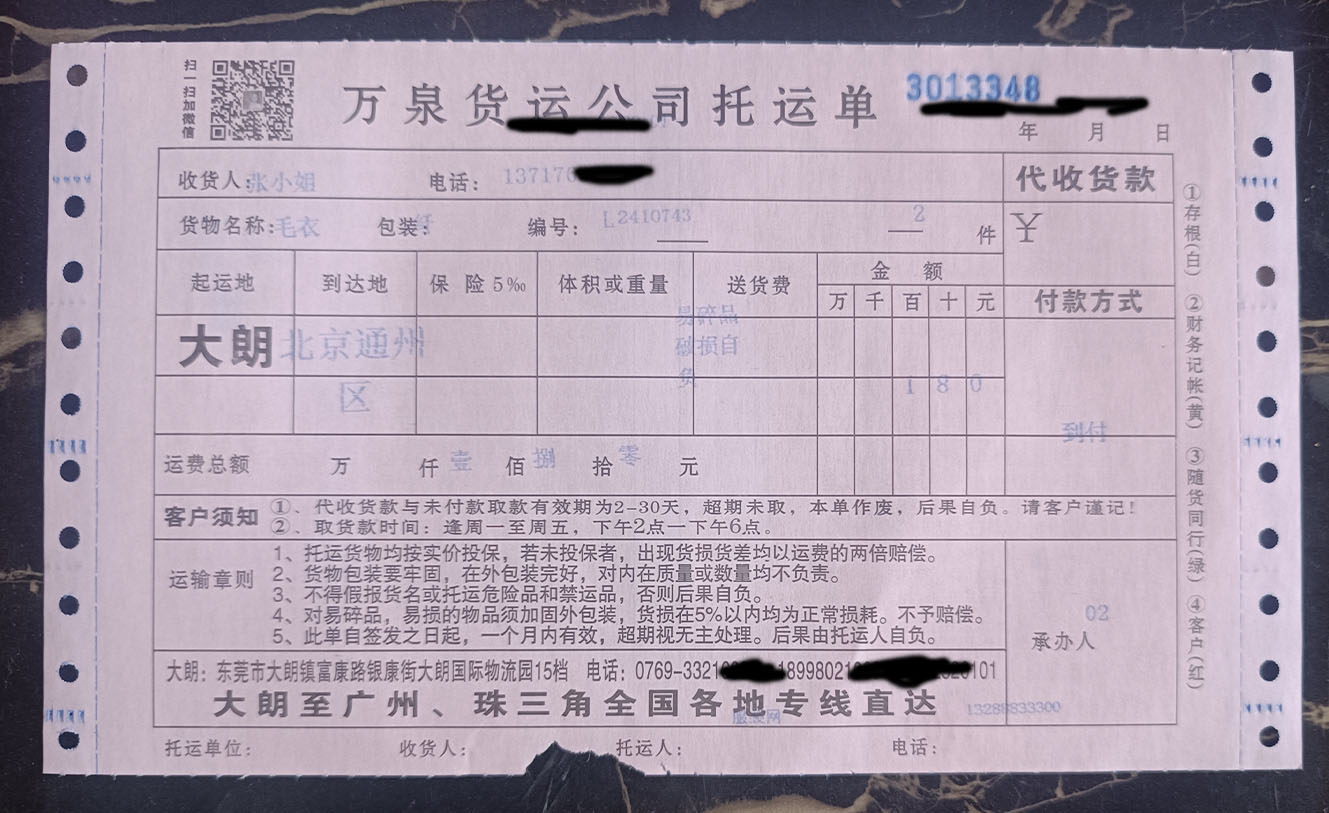 扫一扫加微信
万泉货运公司托运单
3013348
年 月 日
收货人:张小姐 电话: 137176
代收货款
货物名称:毛衣 包装: 纤 编号: L2410743 2 件
¥
起运地 到达地 保 险 5‰ 体积或重量 送货费 金 额
万 千 百 十 元
付款方式
大朗 北京通州区
易碎品
破损自
负
1 8 0
到付
运费总额 万 仟 壹 佰 捌 拾 零 元
客户须知
①、代收货款与未付款取款有效期为2-30天，超期未取，本单作废，后果自负。请客户谨记！
②、取货款时间：逢周一至周五，下午2点一下午6点。
运输章则
1、托运货物均按实价投保，若未投保者，出现货损货差均以运费的两倍赔偿。
2、货物包装要牢固，在外包装完好，对内在质量或数量均不负责。
3、不得假报货名或托运危险品和禁运品，否则后果自负。
4、对易碎品，易损的物品须加固外包装，货损在5%以内均为正常损耗。不予赔偿。
5、此单自签发之日起，一个月内有效，超期视无主处理。后果由托运人自负。
02
承办人
大朗：东莞市大朗镇富康路银康街大朗国际物流园15档 电话：0769-3321 18998021 101
大朗至广州、珠三角全国各地专线直达
服装网
13288833300
托运单位: 收货人: 托运人: 电话:
①存根(白) ②财务记帐(黄) ③随货同行(绿) ④客户(红)